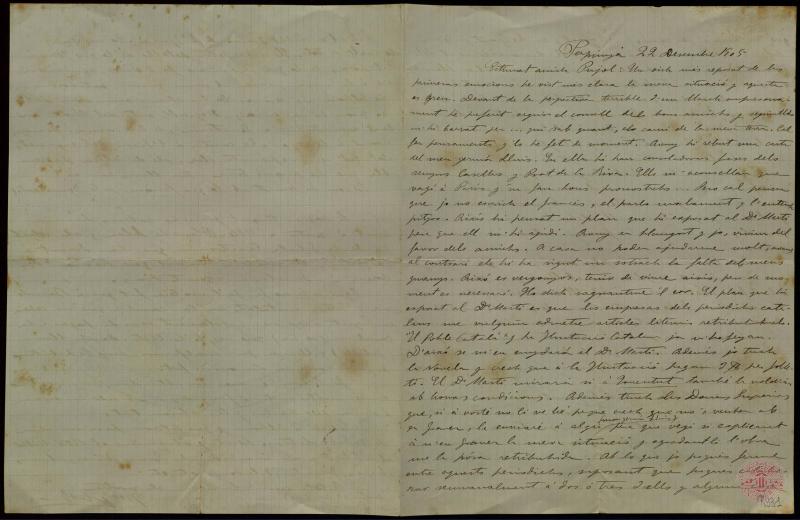 Perpinyá 22 Desembre 1905
Estimat amich Pujol: Un xich més reposat de les
primeras emocions he vist mes clara la meva situació y aquesta
es greu. Devant de la perspectiva terrible d'un llarch empresona-
ment he preferit seguir el consell dels bons amichs y
m'hi barrat per ... qui sab quant, els camí de la meva terra. Cal
fer pensaments y lo he fet de moment. Avuy hi rebut una carta
del meu germá Lluis. En ella hi han consoladoras frases dels
senyors Casellas y Prat de la Riba. Ells m'aconsellan que
vagi á Paris y 'm fan bons pronostichs ... Pero cal pensar
que jo no escrich el francés, el parlo malament y l'entench
pitjor. Aixís hi pensat un plan que hi exposat al Dr Martí
pera que ell m'hi ajudi. Avuy en blanquet y jo, vivim del
favor dels amichs. A casa no poden ajudarme molt,
al contrari els hi ha sigut un sotrach la falta del meus
guanys. Aixó es vergonyós, tenir de viure aixís, pero de mo-
ment es necessari. Ho dich sagnantme 'l cor. El plan que hi
exposat al Dr Martí es que las empresas dels periodichs cata-
lans me vulguin admetre articles literaris retribuintlos.
"El Poble Catalá" y La Ilustració Catalana ja ho feyan.
D'aixó se m'en cuydará el Dr Martí. Además jo tinch
la Novela y crech que á la Ilustració pagan
El Dr Martí mirará si á Joventut també la voldrian
ab bonas condicions. Además tinch Les Donas
que, si á vosté no li ve bé perque crech que no 's ventan ab
en Graner, la enviaré á algú (meu germá Lluis) per que vegi si explicant
á n'en Graner la meva situació y agradantli l'obra
me la posa retribuhida. Ab lo que jo pogués
entre aquests periodichs, suposant que pogués
rar semanalment á dos ó tres d'ells y